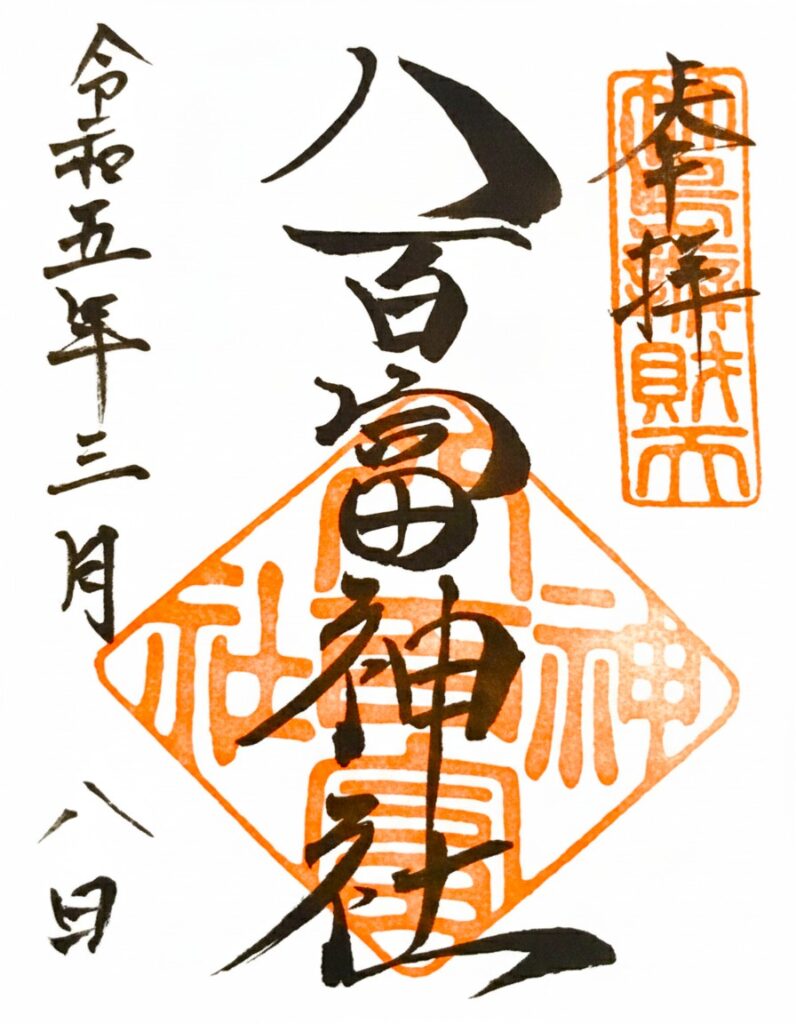 奉拝
辨財天
八百富神社
八百富神社
令和五年三月八日